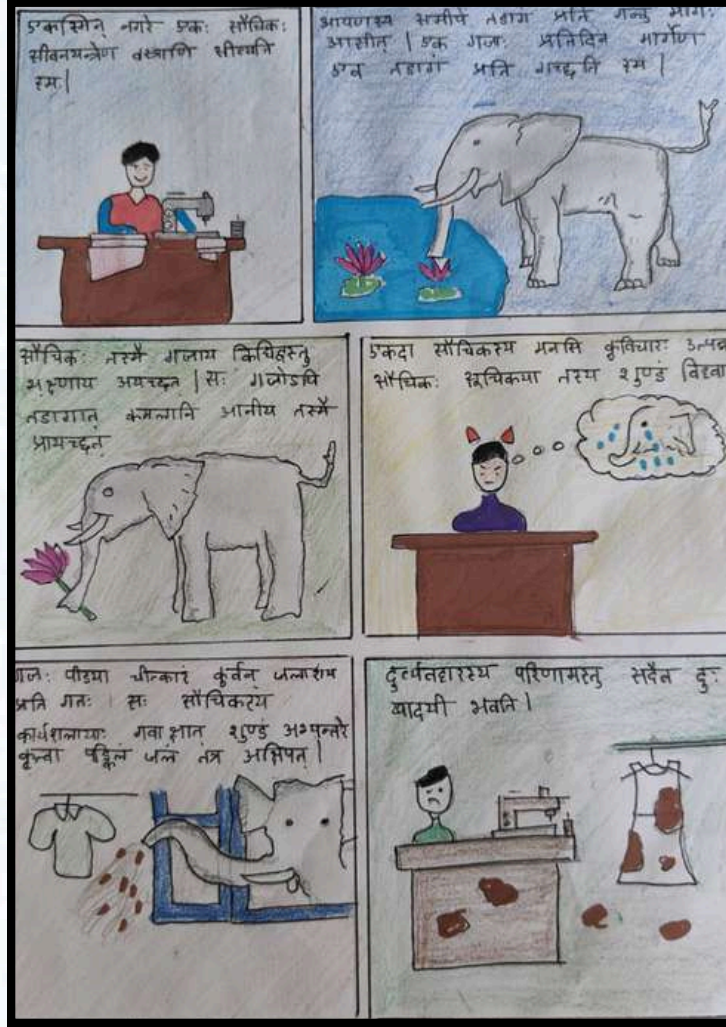 एकस्मिन् नगरे एकः सौचिकः
सीवनयन्त्रेण वस्त्राणि सीव्यति
स्म।
आपणस्य समीपे तडागं प्रति गन्तुं मार्गः
आसीत् | एक गजः प्रतिदिनं मार्गेण
एव तडागं प्रति गच्छति स्म |
सौचिकः तस्मै गजाय किंचिद्वस्तु
भक्षणाय अयच्छत् | सः गजोऽपि
तडागात् कमलानि आनीय तस्मै
प्रायच्छत्
एकदा सौचिकस्य मनसि कुविचारः उत्पन्न
सौचिकः सूचिकया तस्य शुण्डं
गजः पीडया चीत्कारं कुर्वन् जलाशय
प्रति गतः | सः सौचिकस्य
कार्यशालायाः गवाक्षात् शुण्डं अभ्यन्तरे
कृत्वा पङ्किलं जलं तंत्र अक्षिपत् |
दुर्व्यवहारस्य परिणामस्तु सदैव दुः
खदायी भवति |